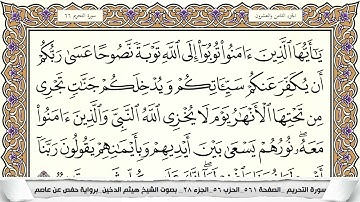 سورة التحريم ٦٦
الجزء الثامن والعشرون
يَا أَيُّهَا الَّذِينَ ءَامَنُوا تُوبُوا إِلَى اللَّهِ تَوْبَةً نَّصُوحًا عَسَىٰ رَبُّكُمْ
أَن يُكَفِّرَ عَنكُمْ سَيِّـَٔاتِكُمْ وَيُدْخِلَكُمْ جَنَّاتٍ تَجْرِى
مِن تَحْتِهَا الْأَنْهَارُ يَوْمَ لَا يُخْزِى اللَّهُ النَّبِىَّ وَالَّذِينَ ءَامَنُوا
مَعَهُۥ ۖ نُورُهُمْ يَسْعَىٰ بَيْنَ أَيْدِيهِمْ وَبِأَيْمَانِهِمْ يَقُولُونَ رَبَّنَا
سورة التحريم _الصفحة ٥٦١ _الحزب ٥٦ _الجزء ٢٨ _ بصوت الشيخ هيثم الدخين _ برواية حفص عن عاصم